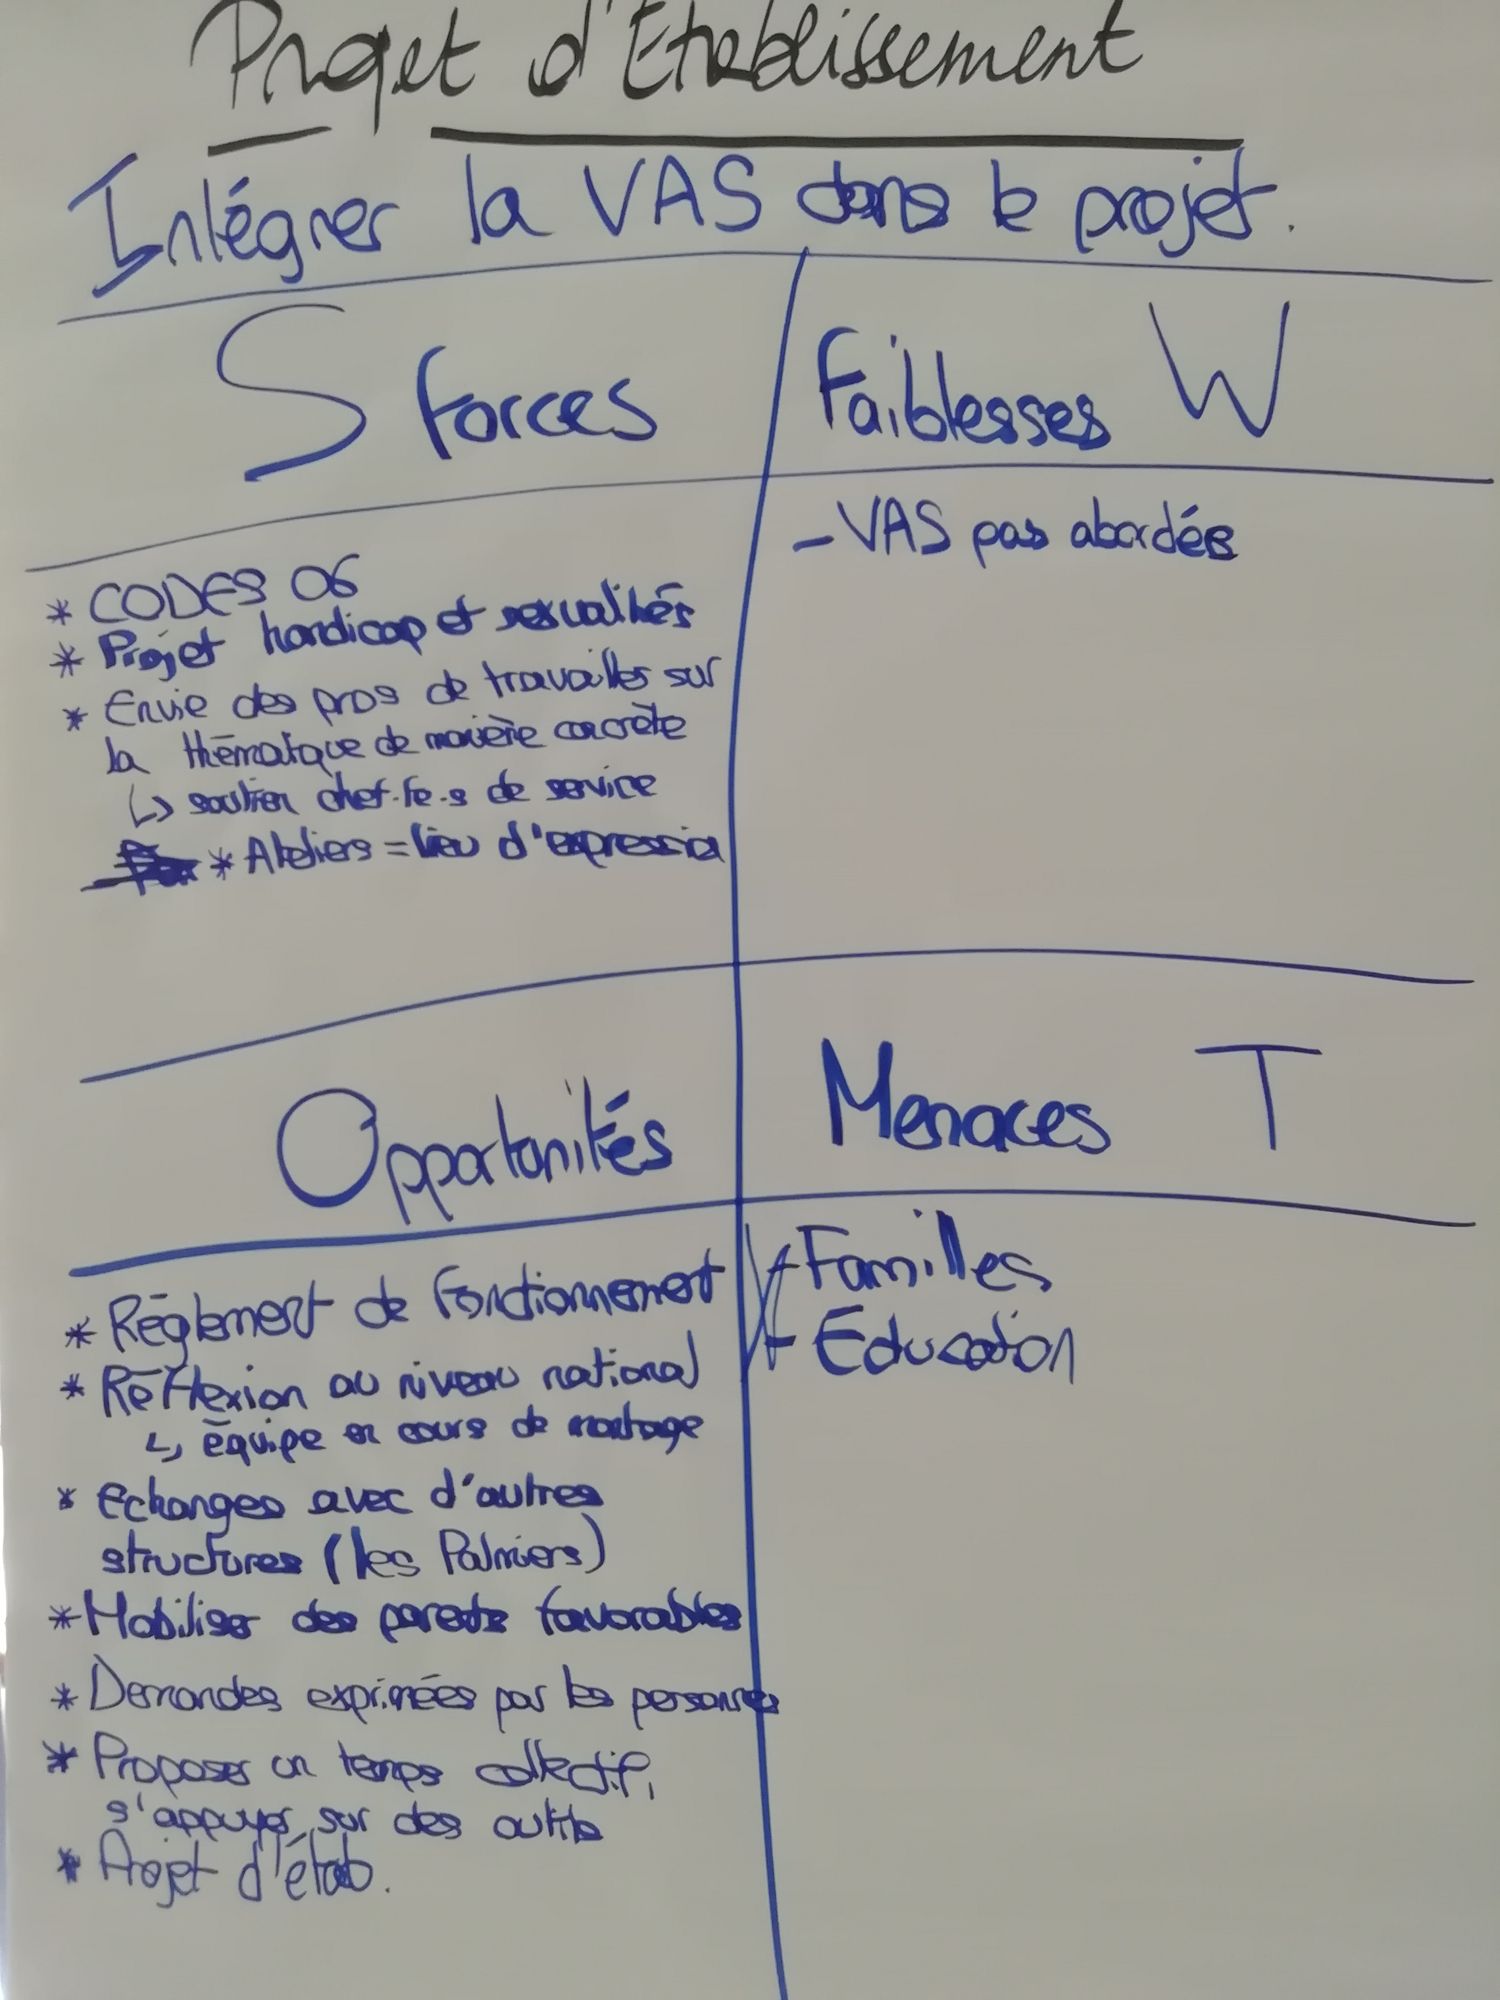 Projet d'Etablissement
Intégrer la VAS dans le projet.
S forces
Faiblesses W
* CODES 06
* Projet handicap et sexualités
* Envie des pros de travailler sur
la thématique de manière concrète
↳ soutien chef.fe.s de service
* Ateliers = lieu d'expression
- VAS pas abordée
Opportunités
Menaces T
* Règlement de fonctionnement
* Réflexion au niveau national
↳ équipe en cours de montage
* échanges avec d'autres
structures (les Palmiers)
* Mobiliser des parents favorables
* Demandes exprimées par les personnes
* Proposer un temps collectif,
s'appuyer sur des outils
* Projet d'étab.
- Familles
- Education